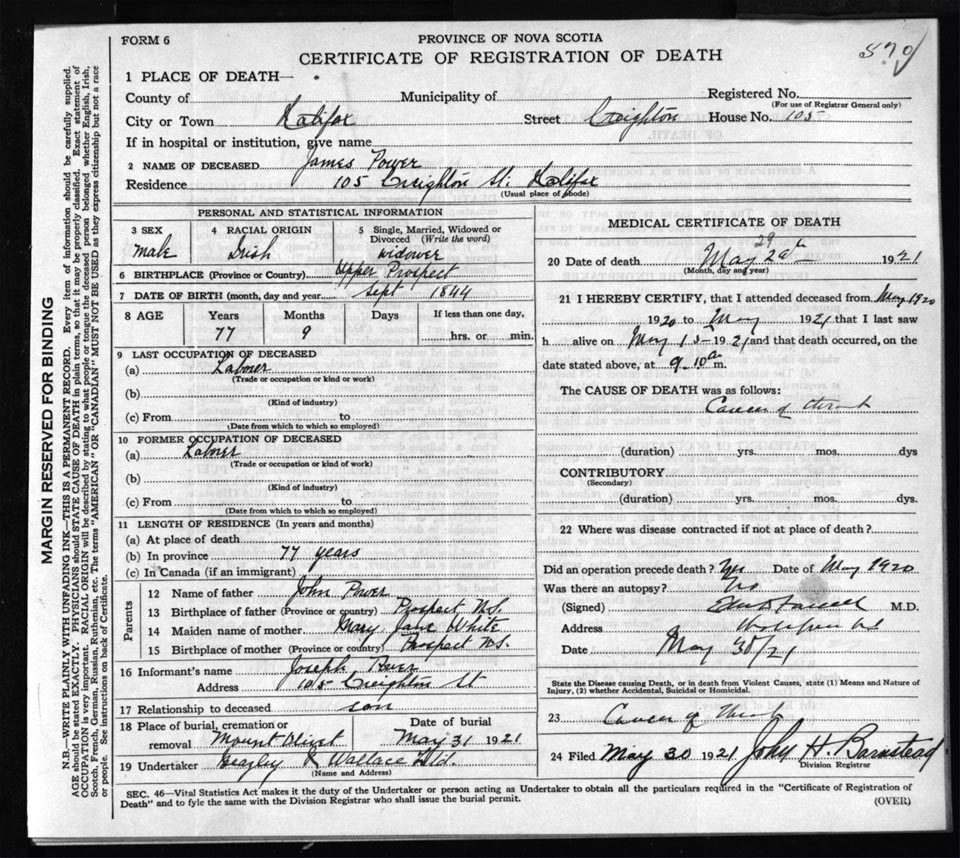 FORM 6
PROVINCE OF NOVA SCOTIA
CERTIFICATE OF REGISTRATION OF DEATH
570
MARGIN RESERVED FOR BINDING
N.B.—WRITE PLAINLY WITH UNFADING INK—THIS IS A PERMANENT RECORD. Every item of information should be carefully supplied.
AGE should be stated EXACTLY. PHYSICIANS should STATE CAUSE OF DEATH in plain terms, so that it may be properly classified. Exact statement of
OCCUPATION is very important. RACIAL ORIGIN will be described by stating to what people or tongue the deceased person belonged whether English, Irish,
Scotch, French, German, Russian, Ruthenian, etc. The terms "AMERICAN" OR "CANADIAN" MUST NOT BE USED as they express citizenship but not a race
or people. See instructions on back of Certificate.
1 PLACE OF DEATH—
County of Municipality of Registered No.
(For use of Registrar General only)
City or Town Halifax Street Creighton House No. 105
If in hospital or institution, give name
2 NAME OF DECEASED James Power
Residence 105 Creighton St. Halifax
(Usual place of abode)
PERSONAL AND STATISTICAL INFORMATION
3 SEX male
4 RACIAL ORIGIN Irish
5 Single, Married, Widowed or Divorced (Write the word) widower
6 BIRTHPLACE (Province or Country) Upper Prospect
7 DATE OF BIRTH (month, day and year) Sept 1844
8 AGE Years Months Days If less than one day,
77 9 hrs. or min.
9 LAST OCCUPATION OF DECEASED
(a) Laborer
(Trade or occupation or kind or work)
(b)
(Kind of industry)
(c) From to
(Date from which to which so employed)
10 FORMER OCCUPATION OF DECEASED
(a) Laborer
(Trade or occupation or kind of work)
(b)
(Kind of industry)
(c) From to
(Date from which to which so employed)
11 LENGTH OF RESIDENCE (In years and months)
(a) At place of death
(b) In province 77 years
(c) In Canada (if an immigrant)
Parents
12 Name of father John Power
13 Birthplace of father (Province or country) Prospect N.S.
14 Maiden name of mother Mary Jane White
15 Birthplace of mother (Province or country) Prospect N.S.
16 Informant's name Joseph Power
Address 105 Creighton St
17 Relationship to deceased son
18 Place of burial, cremation or removal Mount Olivet
Date of burial May 31 1921
19 Undertaker & Wallace Ltd.
(Name and Address)
MEDICAL CERTIFICATE OF DEATH
20 Date of death May 29th 1921
(Month, day and year)
21 I HEREBY CERTIFY, that I attended deceased from May 1920
1920 to May 1921 that I last saw
h alive on May 1921 and that death occurred, on the
date stated above, at 9.10 a m.
The CAUSE OF DEATH was as follows:
Cancer of throat
(duration) yrs. mos. dys
CONTRIBUTORY
(Secondary)
(duration) yrs. mos. dys.
22 Where was disease contracted if not at place of death?
Did an operation precede death? Yes Date of May 1920
Was there an autopsy? No
(Signed) M.D.
Address
Date May 30/21
State the Disease causing Death, or in death from Violent Causes, state (1) Means and Nature of
Injury, (2) whether Accidental, Suicidal or Homicidal.
23 Cancer of throat
24 Filed May 30 1921 John H. Barnstead
Division Registrar
SEC. 46—Vital Statistics Act makes it duty of the Undertaker or person acting as Undertaker to obtain all the particulars required in the "Certificate of Registration of
Death" and to fyle the same with the Division Registrar who shall issue the burial permit.
(OVER)